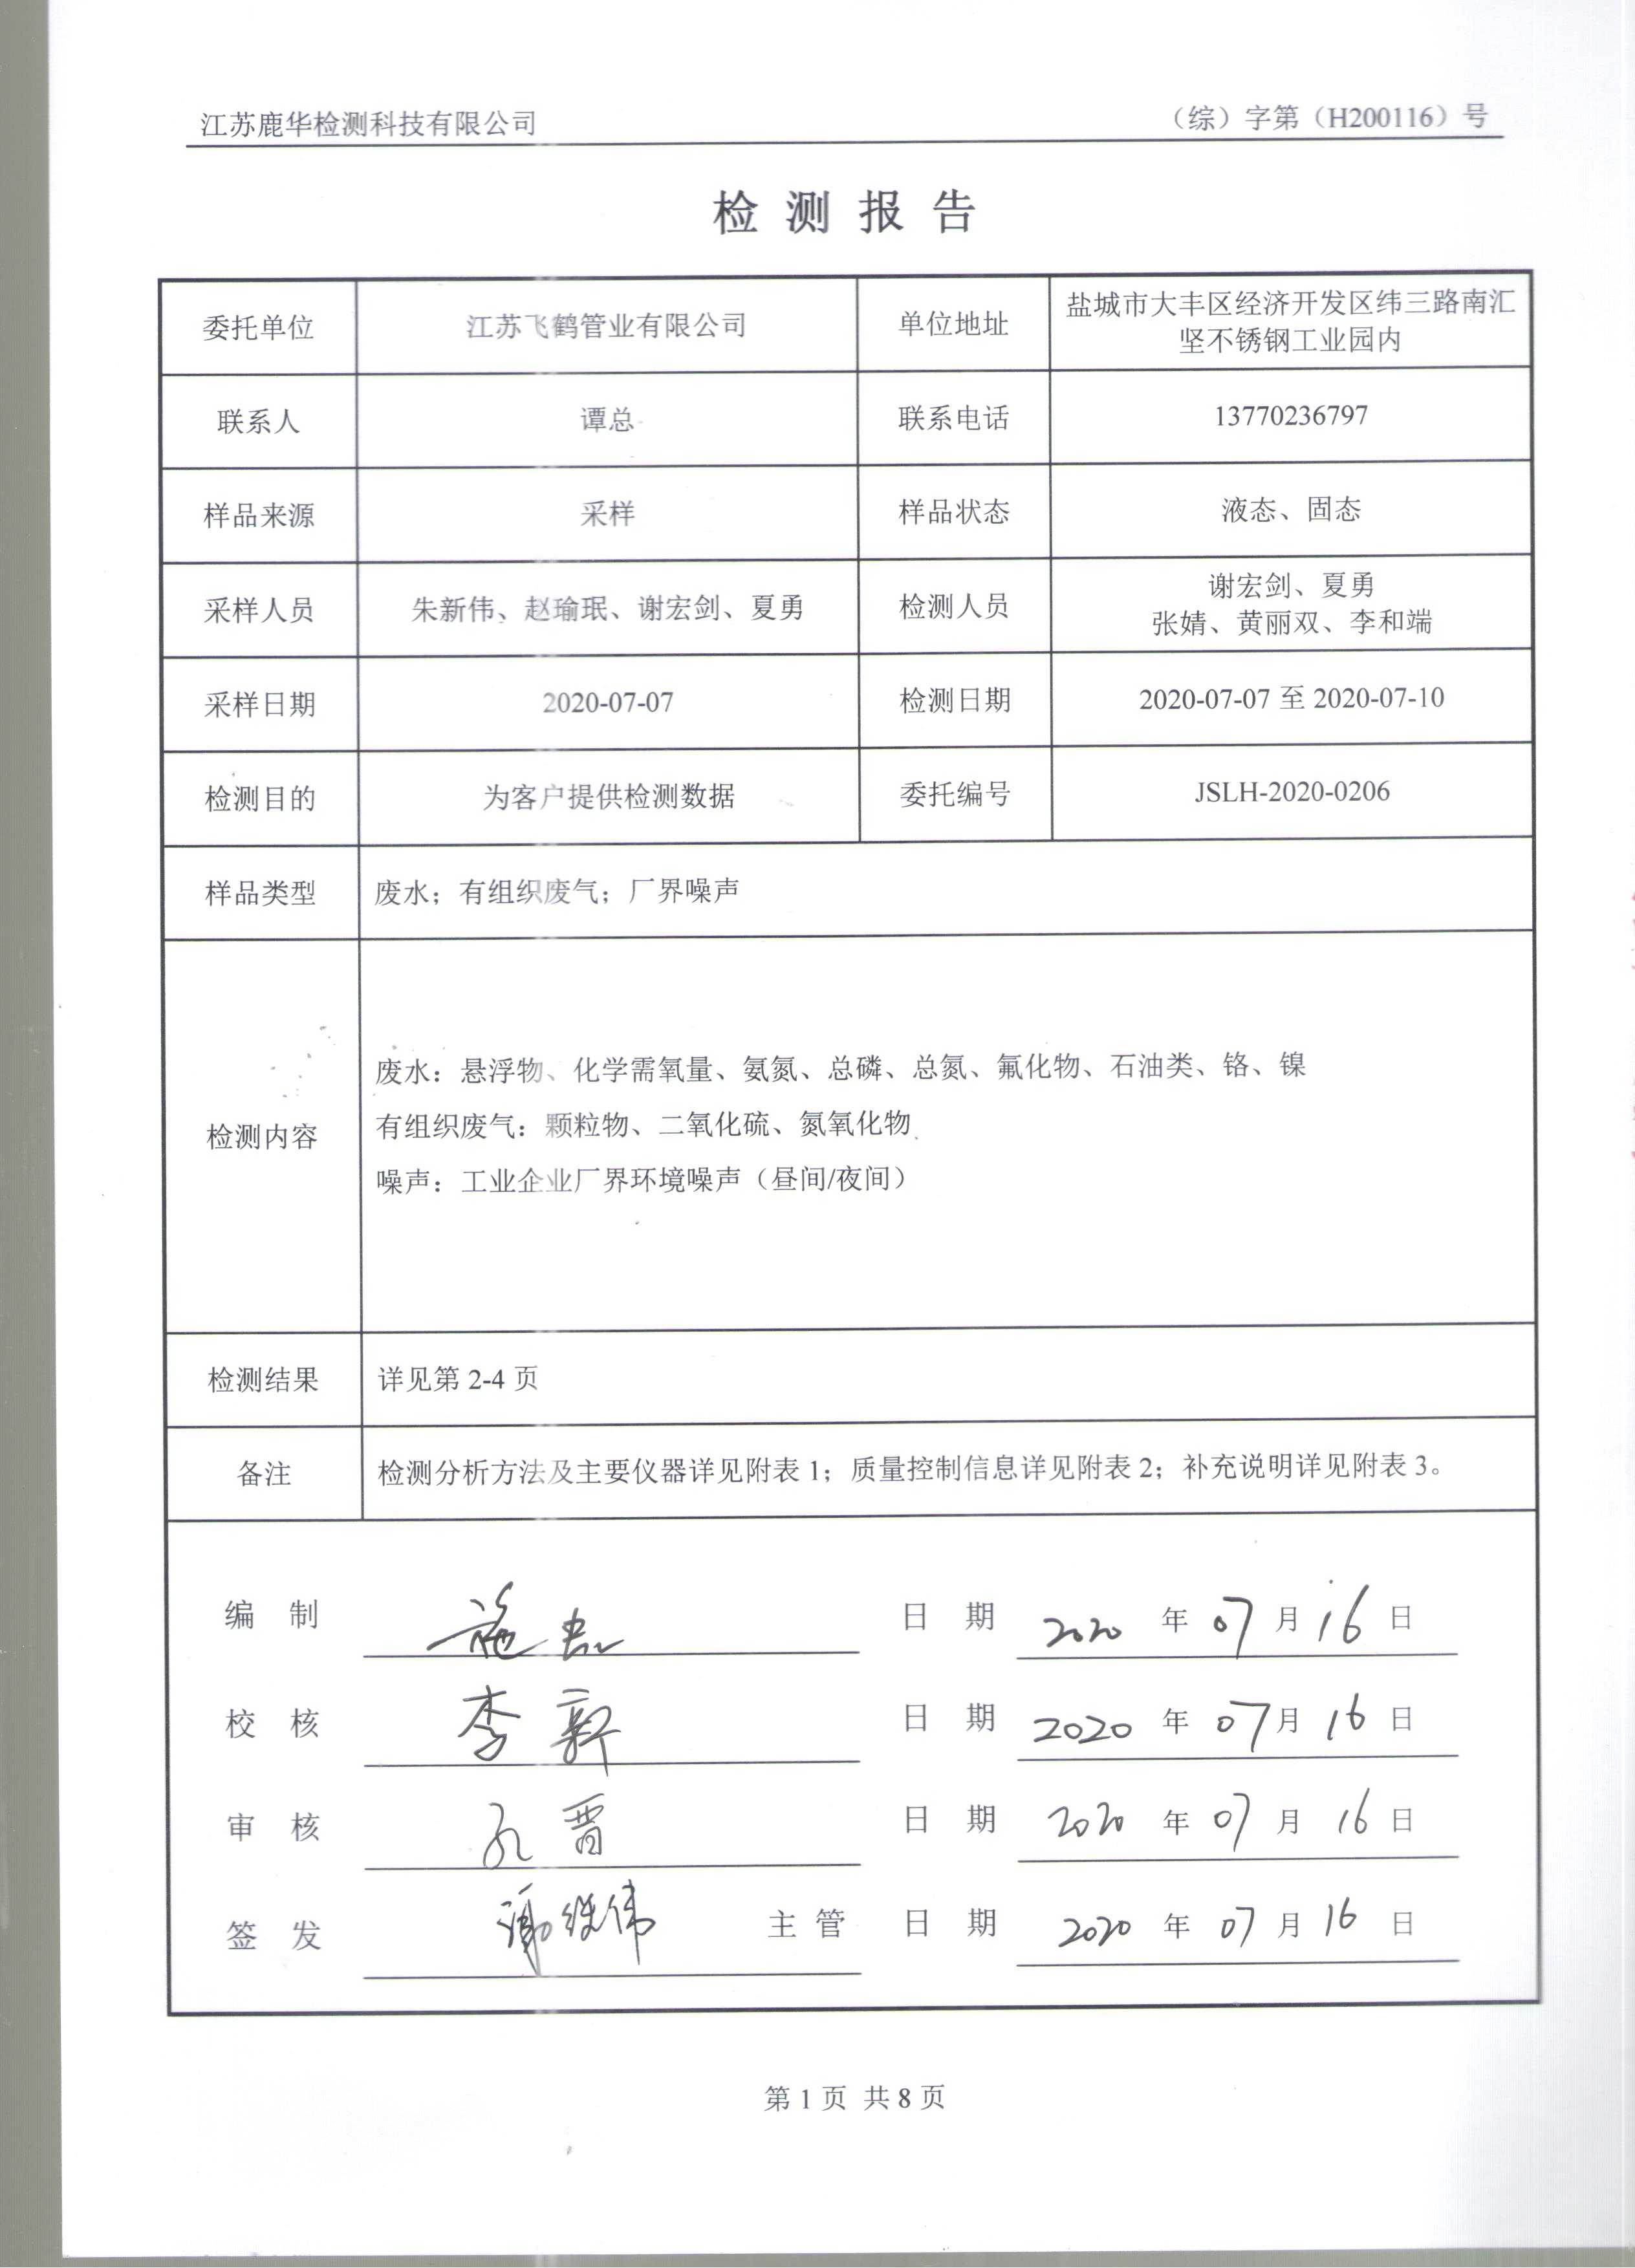 江苏鹿华检测科技有限公司 （综）字第（H200116）号
检测报告
委托单位 江苏飞鹤管业有限公司 单位地址 盐城市大丰区经济开发区纬三路南汇
坚不锈钢工业园内
联系人 谭总 联系电话 13770236797
样品来源 采样 样品状态 液态、固态
采样人员 朱新伟、赵瑜珉、谢宏剑、夏勇 检测人员 谢宏剑、夏勇
张婧、黄丽双、李和端
采样日期 2020-07-07 检测日期 2020-07-07 至 2020-07-10
检测目的 为客户提供检测数据 委托编号 JSLH-2020-0206
样品类型 废水；有组织废气；厂界噪声
检测内容
废水：悬浮物、化学需氧量、氨氮、总磷、总氮、氟化物、石油类、铬、镍
有组织废气：颗粒物、二氧化硫、氮氧化物
噪声：工业企业厂界环境噪声（昼间/夜间）
检测结果 详见第 2-4 页
备注 检测分析方法及主要仪器详见附表 1；质量控制信息详见附表 2；补充说明详见附表 3。
编制 施 日期 2020 年 07 月 16 日
校核 李新 日期 2020 年 07 月 16 日
审核 孔晋 日期 2020 年 07 月 16 日
签发 谢继伟 主管 日期 2020 年 07 月 16 日
第 1 页 共 8 页